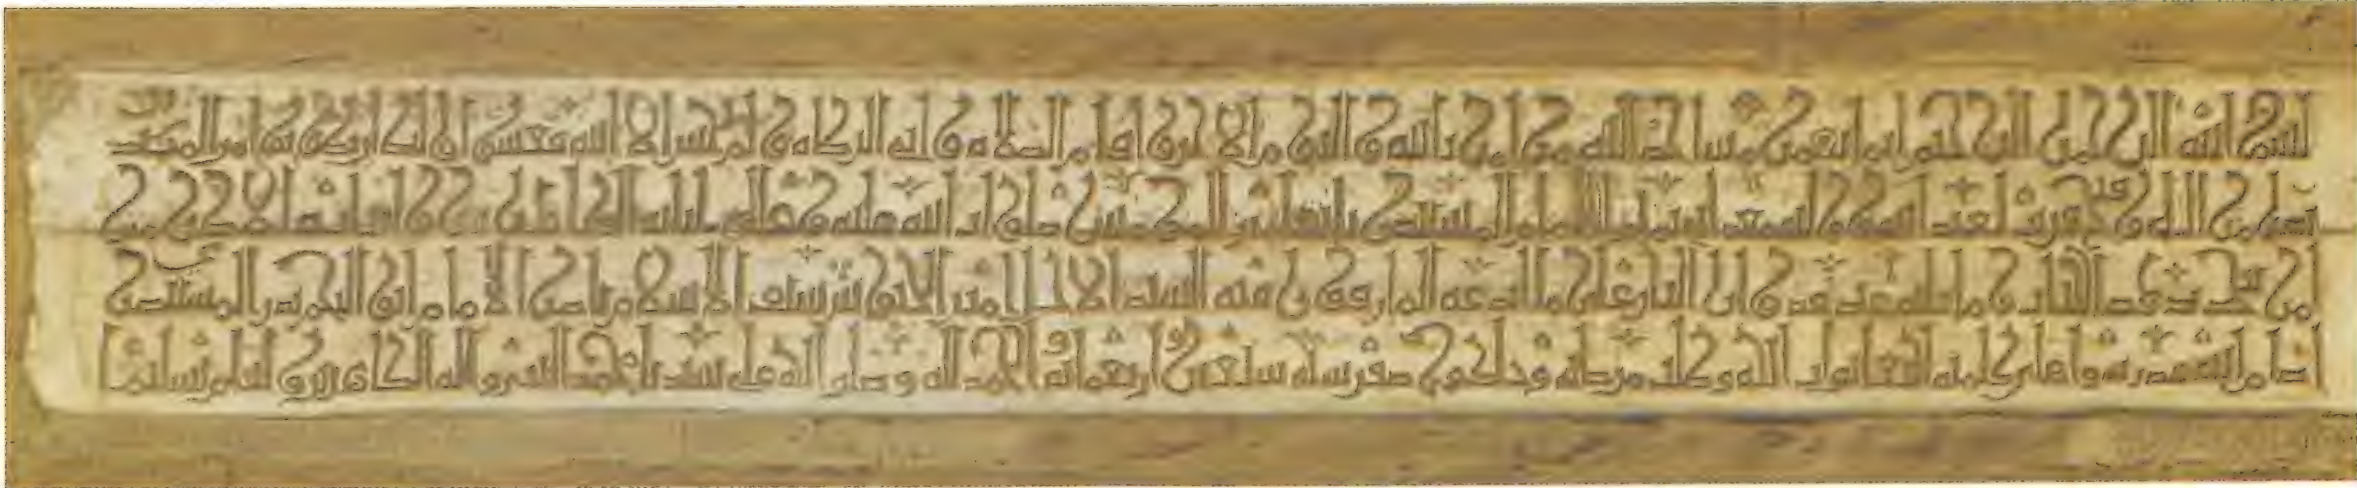 بسم الله الرحمن الرحيم انما يعمر مساجد الله من امن بالله واليوم الاخر واقام الصلاة واتى الزكاة ولم يخش الا الله فعسى اولئك ان يكونوا من المهتدين
نصر من الله وفتح قريب لعبد الله ووليه معد ابي تميم الامام المستنصر بالله امير المؤمنين صلوات الله عليه وعلى ابائه الطاهرين وابنائه الاكرمين
امر بتجديد هذا الباب وما يليه عند عدوان النار على ما ابدعه المارقون فيه السيد الاجل امير الجيوش سيف الاسلام ناصر الامام ابو النجم بدر المستنصري
ادام الله قدرته واعلى كلمته ابتغا ثواب الله وطلب مرضاته وذلك في صفر سنة سبعين واربعمائة الحمد لله وصلواته على سيدنا محمد النبي واله الطاهرين وسلم تسليما